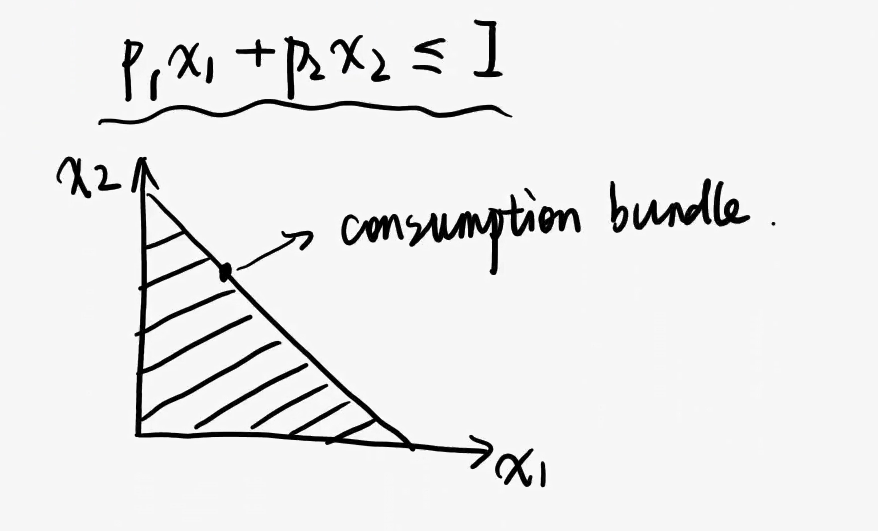 p₁x₁ + p₂x₂ ≤ I
x₂
consumption bundle.
x₁